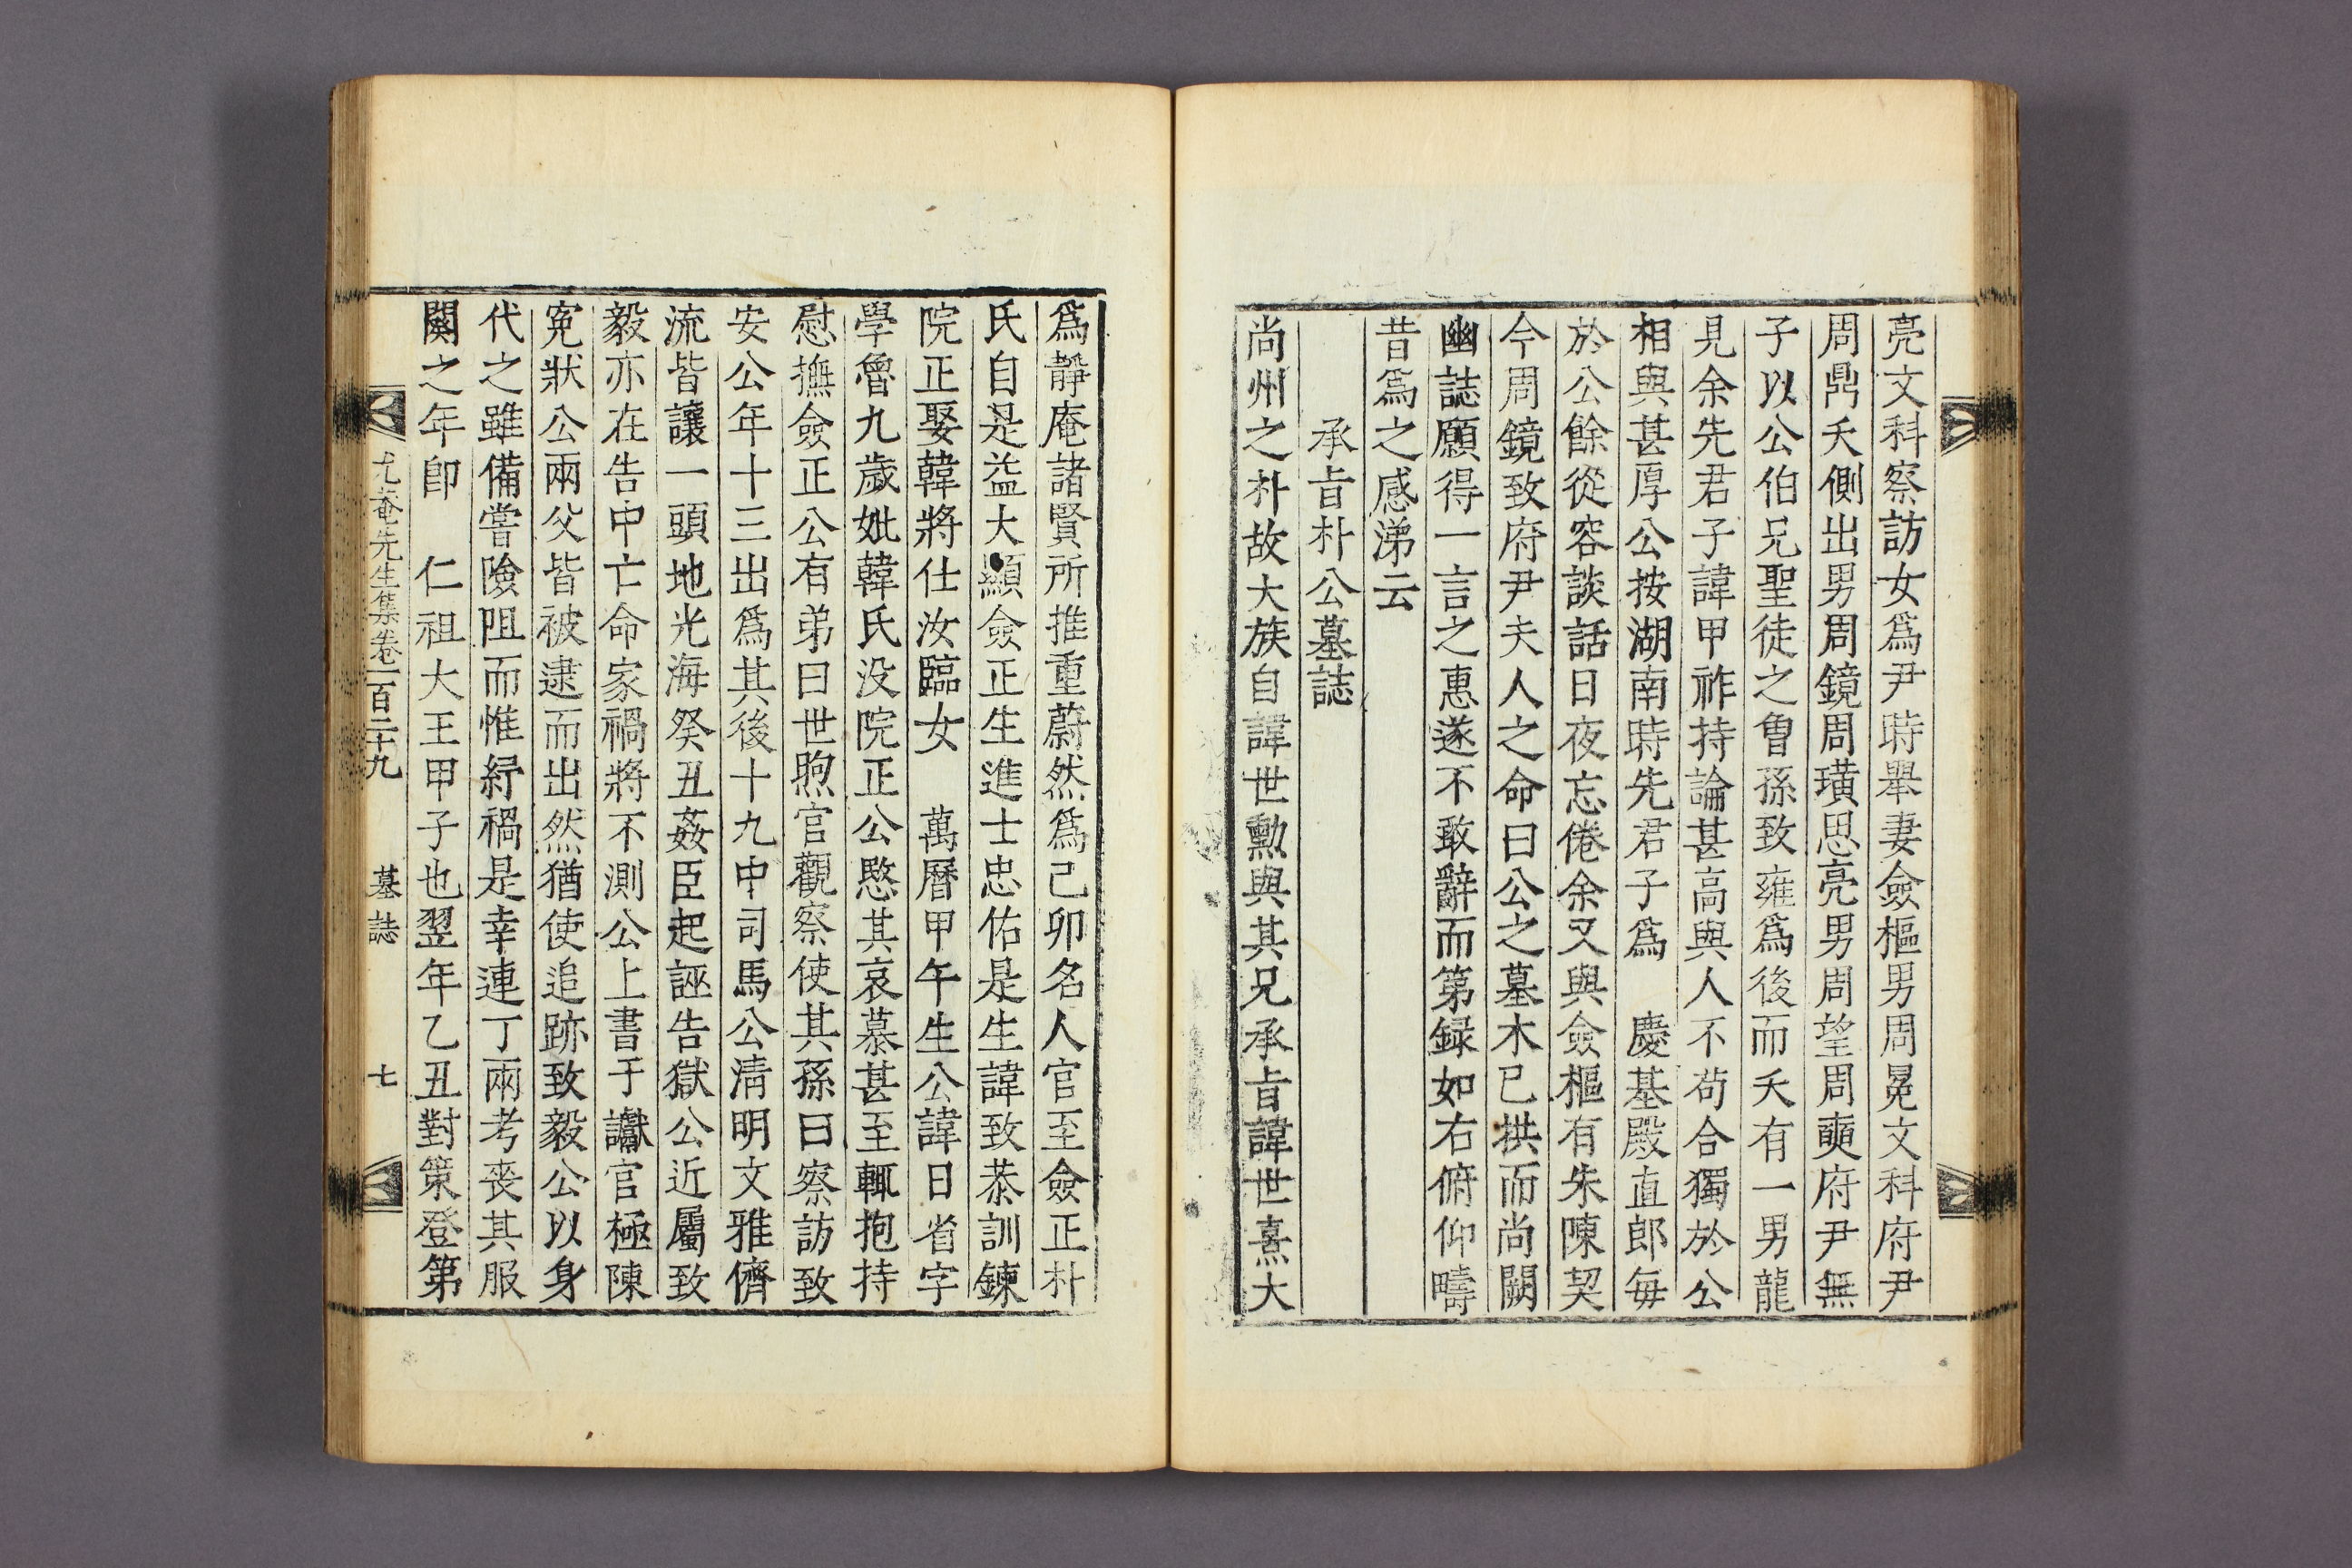 亮文科察訪女爲尹時擧妻僉樞男周冕文科府尹
周鼎夭側出男周鏡周璜思亮男周望周奭府尹無
子以公伯兄聖徒之曾孫致雍爲後而夭有一男龍
見余先君子諱甲祚持論甚高與人不苟合獨於公
相與甚厚公按湖南時先君子爲 慶基殿直郎每
於公餘從容談話日夜忘倦余又與僉樞有朱陳契
今周鏡致府尹夫人之命曰公之墓木已拱而尚闕
幽誌願得一言之惠遂不敢辭而第録如右俯仰疇
昔爲之感涕云
承旨朴公墓誌
尚州之朴故大族自諱世勳與其兄承旨諱世熹大
爲靜庵諸賢所推重蔚然爲己卯名人官至僉正朴
氏自是益大顯僉正生進士忠佑是生諱致恭訓鍊
院正娶韓將仕汝臨女 萬曆甲午生公諱日省字
學魯九歲妣韓氏没院正公愍其哀慕甚至輒抱持
慰撫僉正公有弟曰世煦官觀察使其孫曰察訪致
安公年十三出爲其後十九中司馬公淸明文雅儕
流皆讓一頭地光海癸丑姦臣起誣告獄公近屬致
毅亦在告中亡命家禍將不測公上書于讞官極陳
寃狀公兩父皆被逮而出然猶使追跡致毅公以身
代之雖備嘗險阻而惟紓禍是幸連丁兩考喪其服
闋之年卽 仁祖大王甲子也翌年乙丑對策登第
尤菴先生集卷一百二十九 墓誌 七